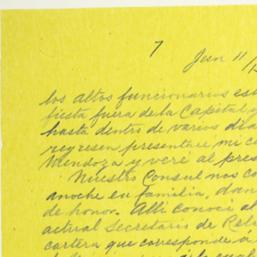 7
Jun 11/
los altos funcionarios est
fiesta fuera de la Capital y
hasta dentro de varios dia
regresen presentare mi c
Mendoza y veré al pres
Nuestro Consul nos co
anoche en familia, don
de honor. Alli conocí al
actual Secretario de Rela
cartera que corresponde á